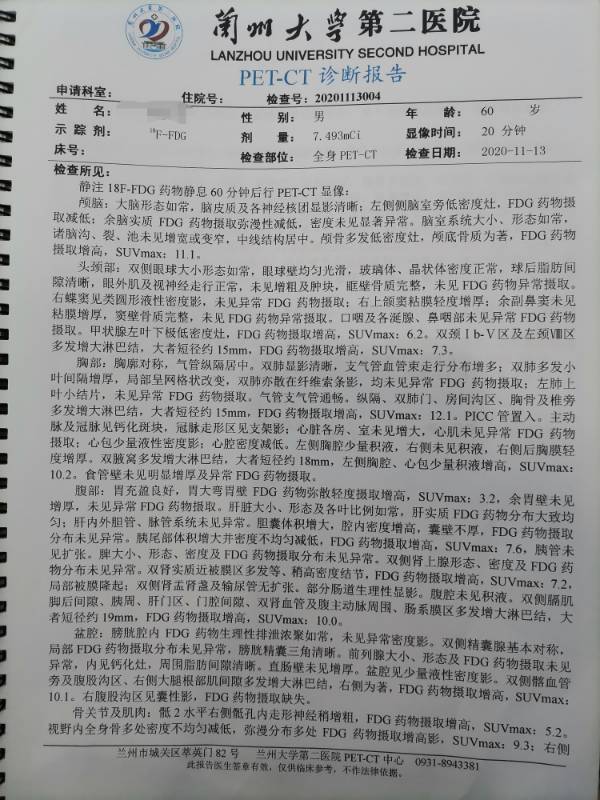 兰州大学第二医院
LANZHOU UNIVERSITY SECOND HOSPITAL
PET-CT 诊断报告
申请科室： 住院号： 检查号：20201113004
姓 名： 性 别：男 年 龄：60 岁
示 踪 剂：¹⁸F-FDG 剂 量：7.493mCi 显像时间：20 分钟
床号： 检查部位：全身 PET-CT 检查日期：2020-11-13
检查所见：
静注 18F-FDG 药物静息 60 分钟后行 PET-CT 显像：
颅脑：大脑形态如常，脑皮质及各神经核团显影清晰；左侧侧脑室旁低密度灶，FDG 药物摄
取减低；余脑实质 FDG 药物摄取弥漫性减低，密度未见显著异常。脑室系统大小、形态如常，
诸脑沟、裂、池未见增宽或变窄，中线结构居中。颅骨多发低密度灶，颅底骨质为著，FDG 药物
摄取增高，SUVmax：11.1。
头颈部：双侧眼球大小形态如常，眼球壁均匀光滑，玻璃体、晶状体密度正常，球后脂肪间
隙清晰，眼外肌及视神经走行正常，未见增粗及肿块，眶壁骨质完整，未见 FDG 药物异常摄取。
右蝶窦见类圆形液性密度影，未见异常 FDG 药物摄取；右上颌窦粘膜轻度增厚；余副鼻窦未见
粘膜增厚，窦壁骨质完整，未见 FDG 药物异常摄取。口咽及各涎腺、鼻咽部未见异常 FDG 药物
摄取。甲状腺左叶下极低密度灶，FDG 药物摄取增高，SUVmax：6.2。双颈Ⅰb-Ⅴ区及左颈Ⅷ区
多发增大淋巴结，大者短径约 15mm，FDG 药物摄取增高，SUVmax：7.3。
胸部：胸廓对称，气管纵隔居中。双肺显影清晰，支气管血管束走行分布增多；双肺多发小
叶间隔增厚，局部呈网格状改变，双肺亦散在纤维索条影，均未见异常 FDG 药物摄取；左肺上
叶小结片，未见异常 FDG 药物摄取。气管支气管通畅。纵隔、双肺门、房间沟区、胸骨及椎旁
多发增大淋巴结，大者短径约 15mm，FDG 药物摄取增高，SUVmax：12.1。PICC 管置入。主动
脉及冠脉见钙化斑块，冠脉走形区见支架影；心脏各房、室未见增大，心肌未见异常 FDG 药物
摄取；心包少量液性密度影；心腔密度减低。左侧胸腔少量积液，右侧未见积液，右侧后胸膜轻
度增厚。双腋窝多发增大淋巴结，大者短径约 18mm，左侧胸腔、心包少量积液增高，SUVmax：
10.2。食管壁未见明显增厚及异常 FDG 药物摄取。
腹部：胃充盈良好，胃大弯胃壁 FDG 药物弥散轻度摄取增高，SUVmax：3.2，余胃壁未见
增厚，未见异常 FDG 药物摄取。肝脏大小、形态及各叶比例如常，肝实质 FDG 药物分布大致均
匀；肝内外胆管、脉管系统未见异常。胆囊体积增大，腔内密度增高，囊壁不厚，FDG 药物摄取
分布未见异常。胰尾部体积增大并密度不均匀减低，FDG 药物摄取增高，SUVmax：7.6，胰管未
见扩张。脾大小、形态、密度及 FDG 药物摄取分布未见异常。双侧肾上腺形态、密度及 FDG 药
物分布未见异常。双肾实质近被膜区多发等、稍高密度结节，FDG 药物摄取增高，SUVmax：7.2，
局部被膜隆起；双侧肾盂肾盏及输尿管无扩张。部分肠道生理性显影。腹腔未见积液。双侧膈肌
脚后间隙、胰周、肝门区、门腔间隙、双肾血管及腹主动脉周围、肠系膜区多发增大淋巴结，大
者短径约 19mm，FDG 药物摄取增高，SUVmax：10.0。
盆腔：膀胱腔内 FDG 药物生理性排泄浓聚如常，未见异常密度影。双侧精囊腺基本对称，
局部 FDG 药物摄取分布未见异常，膀胱精囊三角清晰。前列腺大小、形态及 FDG 药物摄取未见
异常，内见钙化灶，周围脂肪间隙清晰。直肠壁未见增厚。盆腔见少量液性密度影。双侧髂血管
旁及腹股沟区、右侧大腿根部肌间隙多发增大淋巴结，右侧为著，FDG 药物摄取增高，SUVmax：
10.1。右腹股沟区见囊性影，FDG 药物摄取缺失。
骨关节及肌肉：骶 2 水平右侧骶孔内走形神经稍增粗，FDG 药物摄取增高，SUVmax：5.2。
视野内全身骨多处密度不均匀减低，弥漫分布多处 FDG 药物摄取增高影，SUVmax：9.3；右侧
兰州市城关区萃英门 82 号 兰州大学第二医院 PET-CT 中心 0931-8943381
此报告医生签章有效，仅供临床参考，不作法律依据。